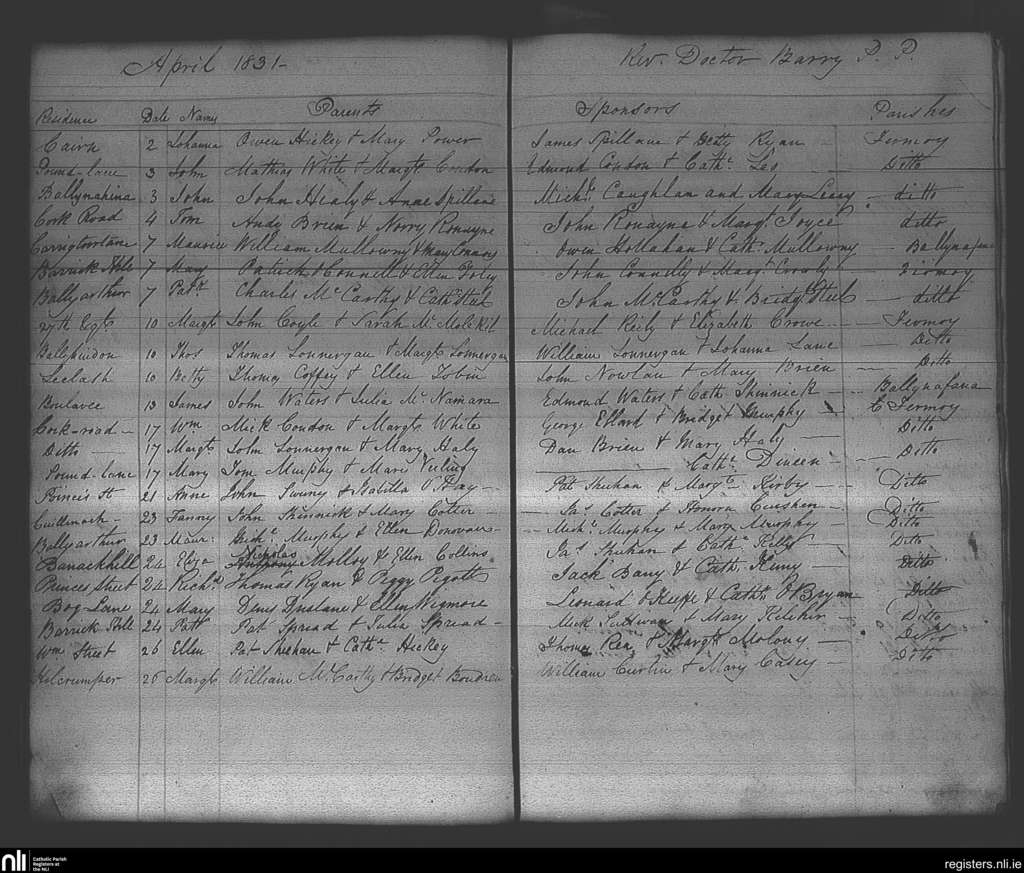 April 1831- Rev. Doctor Barry P. P.
Residence Date Names Parents Sponsors Parishes
Cairn 2 Johanna Owen Hickey & Mary Power James Spillane & Betty Ryan Fermoy
Pound-lane 3 John Mathias White & Margt Condon Edmond Condon & Cathe Ditto
Ballynahina 3 John John Healy & Anne Spillane Michl Caughlan and Mary Leary ditto
Cork Road 4 Tom Andy Brien & Norry Ronayne John Ronayne & Margt Joyce ditto
7 Maurice William Mullowny & Mary Connors Owen Hollahan & Cathe Mullowny Ballynafana
Barrick Hill 7 Mary Patrick O Connell & Ellen Foley John Connelly & Margt Fermoy
Ballyarthur 7 Patk Charles Mc Carthy & Cathe Steel John McCarthy & Bridgt Steel ditto
27th Regt 10 Margt John Coyle & Sarah Mc Michael Reily & Elizabeth Crowe Fermoy
10 Thos Thomas Lonnergan & Margt Lonnergan William Lonnergan & Johanna Lane Ditto
Leclash 10 Betty Thomas Coffey & Ellen Tobin John Nowlan & Mary Brien Ditto
Boulavee 13 James John Waters & Julia Mc Namara Edmond Waters & Cath Shinnick Ballynafana
Cork-road 17 Wm Mick Condon & Margt White George Ellard & Bridget Murphy & Fermoy
Ditto 17 Margt John Lonnergan & Mary Haly Dan Brien & Mary Haly Ditto
Pound-Lane 17 Mary Tom Murphy & Cathe Dineen Ditto
Princes St 21 Anne John & Isabilla Pat Shehan & Margt Kirby Ditto
23 Fanny John Shinnick & Mary Cotter Jas Cotter & Honora Ditto
Ballyarthur 23 Maur: Michl Murphy & Ellen Donovan Michl Murphy & Mary Murphy Ditto
Banackhill 24 Eliza Nicholas Anthony Molloy & Ellen Collins Jas Shehan & Cathe Kelly Ditto
Princes Street 24 Richd Thomas Ryan & Peggy Pigott Jack Barry & Cath. Ditto
Bog-Lane 24 Mary Denis & Ellen Wigmore Leonard O Keeffe & Cathe O'Bryan Ditto
Barrick Hill 24 Patk Pat Spread & Julia Spread Mick Sullivan & Mary Kelcher Ditto
Wm Street 26 Ellen Pat Shehan & Catha Hickey Thomas Rea & Margt Molony Ditto
Kilcrumper 26 Margt William McCarthy & Bridget William Curtin & Mary Casey Ditto
nli Catholic Parish Registers at the NLI
registers.nli.ie